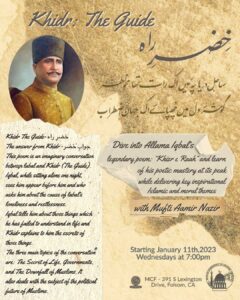 Khidr: The Guide
خضر راہ
Khidr The Guide- خضرِ راہ
The answer from Khidr - جواب خضر
This poem is an imaginary conversation
between Iqbal and Khidr (The Guide).
Iqbal, while sitting alone one night,
sees him appear before him and who
asks him about the cause of Iqbal's
loneliness and restlessness.
Iqbal tells him about three things which
he has failed to understand in life and
Khidr explains to him the secrets of
these things.
The three main topics of the conversation
are: The Secret of Life, Governments,
and The Downfall of Muslims. It
also deals with the subject of the political
future of Muslims.
Dive into Allama Iqbal's
legendary poem: "Khizr e Raah" and learn
of his poetic mastery at its peak
while delivering key inspirational
Islamic and moral themes
with Mufti Aamir Nazir
Starting January 11th,2023
Wednesdays at 7:00pm
MCF - 391 S Lexington
Drive, Folsom, CA